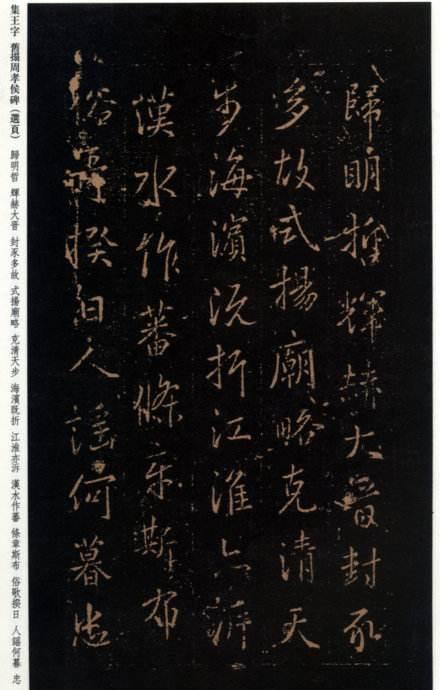 歸明哲輝赫大晉封豕
多故式揚廟略克清天
步海濱既折江淮亦泝
漢水作蕃條章斯布
俗歌揆日人謠何暮忠
集王字 舊搨周孝侯碑(選頁) 歸明哲 輝赫大晉 封豕多故 式揚廟略 克清天步 海濱既折 江淮亦泝 漢水作蕃 條章斯布 俗歌揆日 人謠何暮 忠